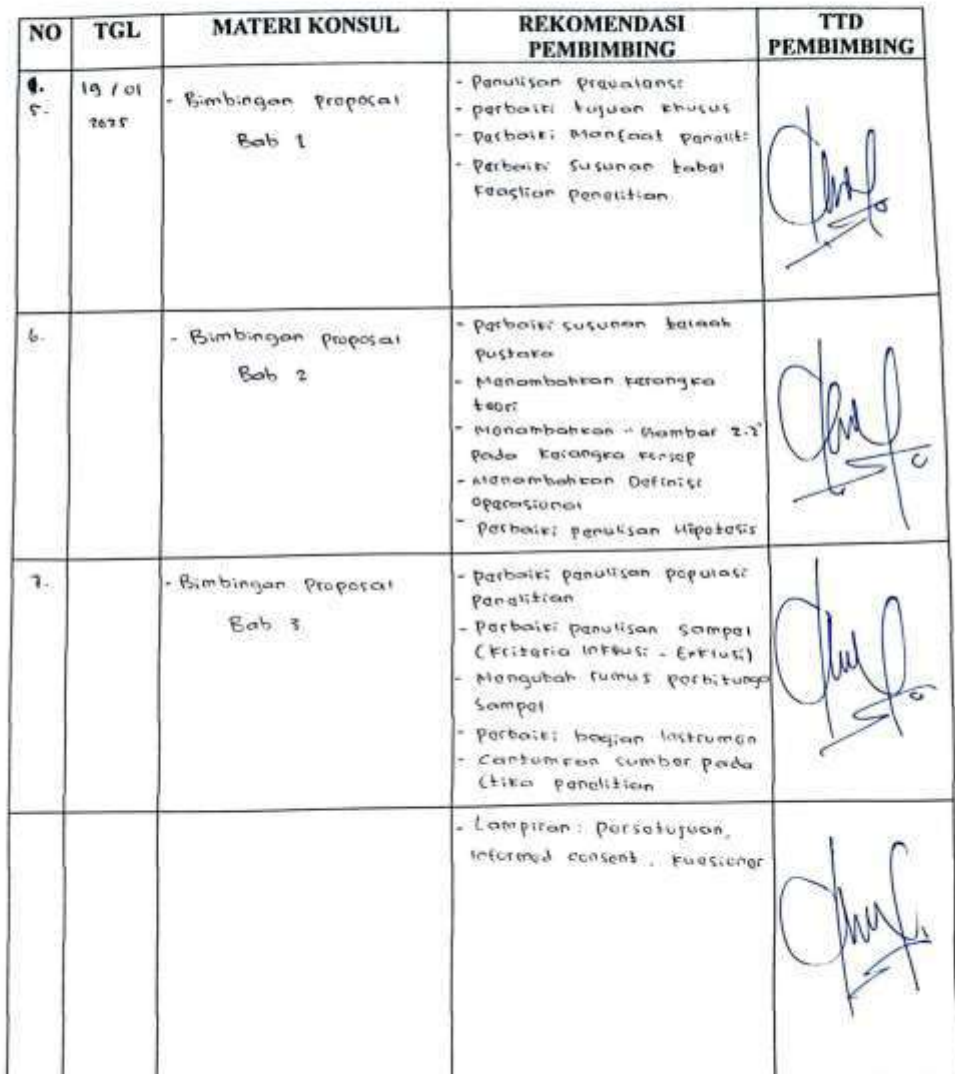 NO TGL MATERI KONSUL REKOMENDASI PEMBIMBING TTD PEMBIMBING
5. 19 / 01 2025
- Bimbingan proposal
Bab 1
- Penulisan prevalensi
- perbaiki tujuan khusus
- perbaiki Manfaat peneliti
- Perbaiki susunan tabel
keaslian penelitian
6.
- Bimbingan proposal
Bab 2
- perbaiki susunan telaah
pustaka
- Menambahkan kerangka
teori
- Menambahkan - Gambar 2.2
pada kerangka konsep
- Menambahkan Definisi
Operasional
- Perbaiki penulisan Hipotesis
7.
- Bimbingan proposal
Bab 3
- perbaiki penulisan populasi
penelitian
- Perbaiki penulisan sampel
(kriteria Inklusi - Eklusi)
- Mengubah rumus perhitunga
Sampel
- perbaiki bagian instrumen
- Cantumkan sumber pada
Etika penelitian
- Lampiran : persetujuan,
informed consent, kuesioner